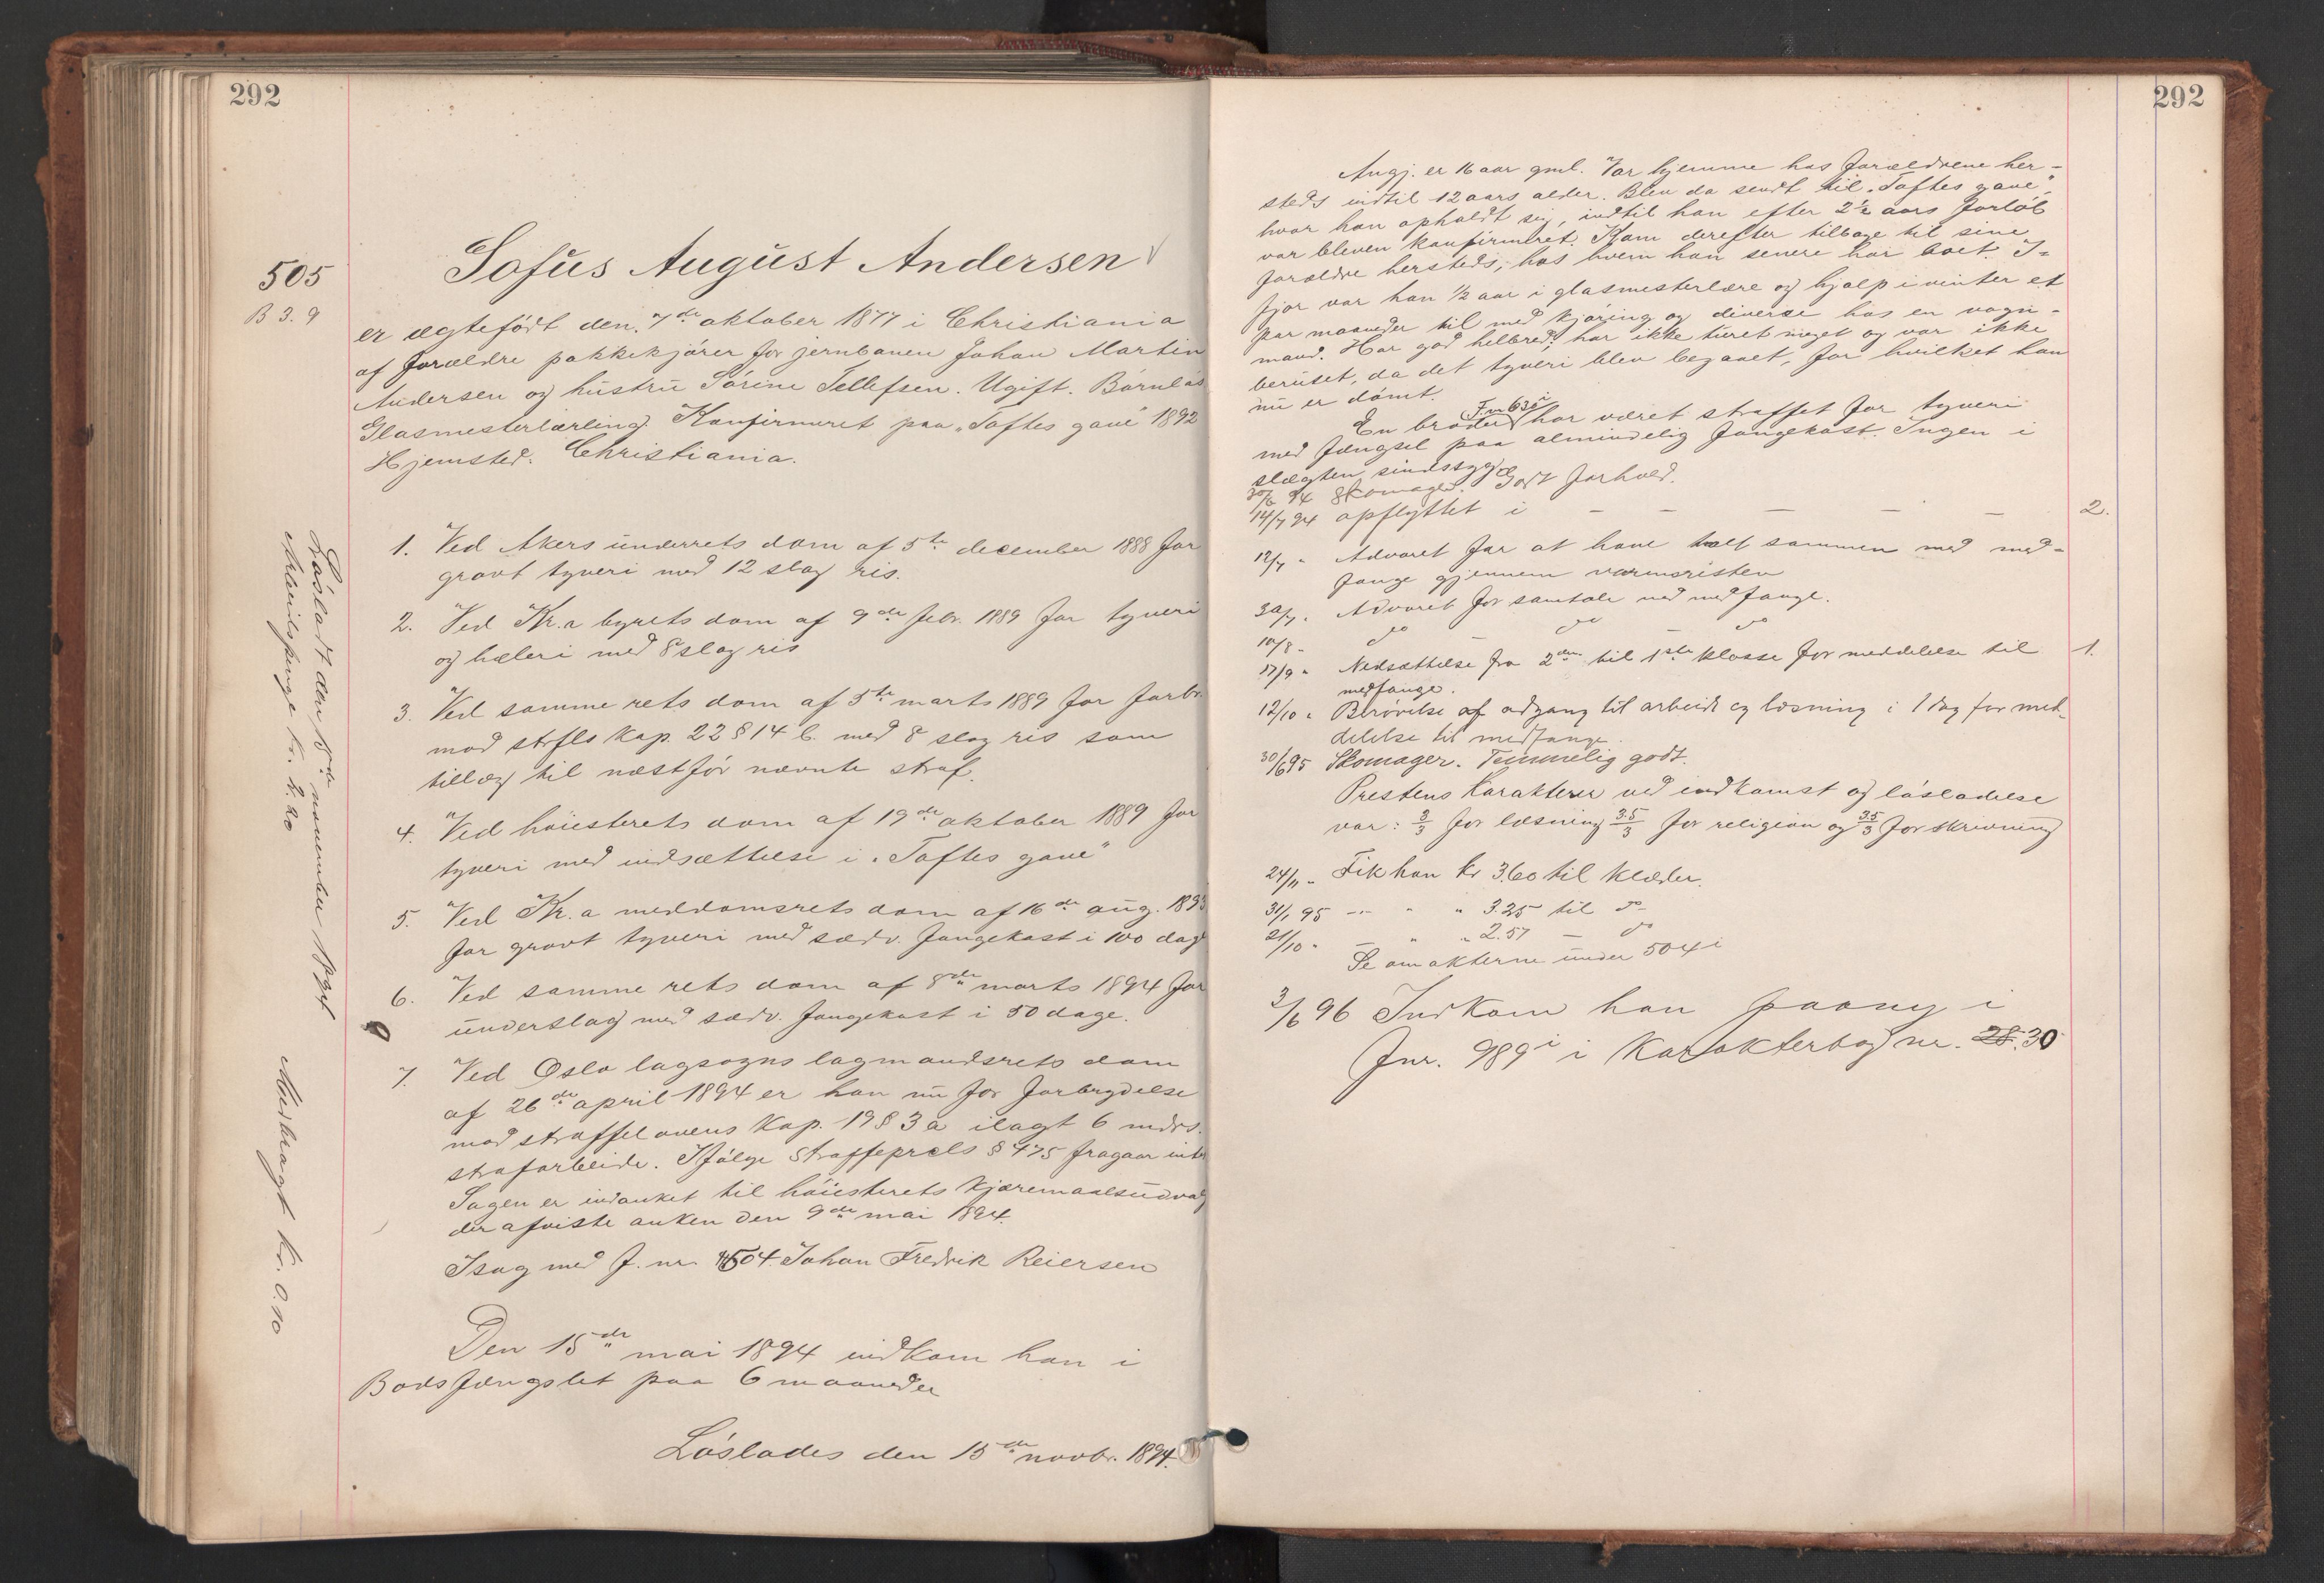 292
505
B 3. 9
Sofus August Andersen
er ægtefödt den 7de oktober 1877 i Christiania
af forældre pakkekjörer for jernbanen Johan Martin
Andersen og hustru Sörine Tellefsen. Ugift. Barnlös
Glasmesterlærling. Konfirmeret paa „Toftes gave" 1892
Hjemsted: Christiania.
1. Ved Akers underrets dom af 5te december 1888 for
grovt tyveri med 12 slag ris.
2. Ved Kr.a byrets dom af 9de febr. 1889 for tyveri
og hæleri med 8 slag ris
3. Ved samme rets dom af 5te marts 1889 for forbr.
mod strfls Kap. 22 § 14 b. med 8 slag ris som
tillæg til næstför nævnte straf.
4. Ved höiesterets dom af 19de oktober 1889 for
tyveri med indsættelse i „Toftes gave"
5. Ved Kr.a meddomsrets dom af 16de aug. 1893
for grovt tyveri med sædv. fangekost i 100 dage
6. Ved samme rets dom af 8de marts 1894 for
underslag med sædv. fangekost i 50 dage.
7. Ved Oslo lagsogns lagmandsrets dom
af 26de april 1894 er han nu for forbrydelse
mod straffelovens Kap. 19 § 3 a ilagt 6 mdrs.
strafarbeide. Ifölge straffeprcls § 475 fragaar intet
Sagen er indanket til höiesterets kjæremaalsudvalg
der afviste anken den 9de mai 1894.
Isag med f. nr. 504 Johan Fredrik Reiersen
Den 15de mai 1894 indkom han i
Bodsfængslet paa 6 maaneder
Löslades den 15de novbr. 1894.
Lösladt den 15de november 1894
Arbeidspenge kr. 2.20
Medbragt kr. 0.10
292
Angj. er 16 aar gml. Var hjemme hos forældrene her-
steds indtil 12 aars alder. Blev da sendt til „Toftes gave",
hvor han opholdt sig, indtil han efter 2½ aars forlöb
var bleven konfirmeret. Kom derefter tilbage til sine
forældre hersteds, hos hvem han senere har boet. I-
fjor var han ½ aar i glasmesterlære og hjalp i vinter et
par maaneder til med kjöring og diverse hos en vogn-
mand. Har god helbred, har ikke turet meget og var ikke
beruset, da det tyveri blev begaaet, for hvilket han
nu er dömt.
En broder F.nr 635 har været straffet for tyveri
med fængsel paa almindelig fangekost. Ingen i
slægten sindssyg.
30/6 94 Skomager. Godt forhold.
14/7 94 opflyttet i — — — — — 2.
12/7 " Advaret for at have talt sammen med med-
fange gjennem varmeristen
30/7 " Advaret for samtale med medfange.
10/8 " do do do
17/9 " Nedsættelse fra 2den til 1ste klasse for meddelelse til 1.
medfange.
12/10 " Berövelse af adgang til arbeide og læsning i 1 dag for med-
delelse til medfange.
30/6 95 Skomager. Temmelig godt.
Prestens Karakterer ved indkomst og lösladelse
var: 3/3 for læsning 3.5/3 for religion og 3.5/3 for skrivning
24/11 " Fik han kr 3.60 til klæder.
31/1 95 — " " 3.25 til do
21/10 " — " " 2.57 — do
Se om akterne under 504 i
3/6 96 Indkom han paany i
Fnr. 989 i i Karakterbog nr. 28. 30